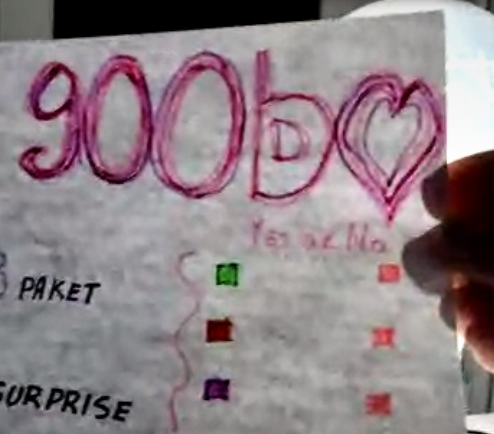 900D
Yes or No
PAKET
SURPRISE